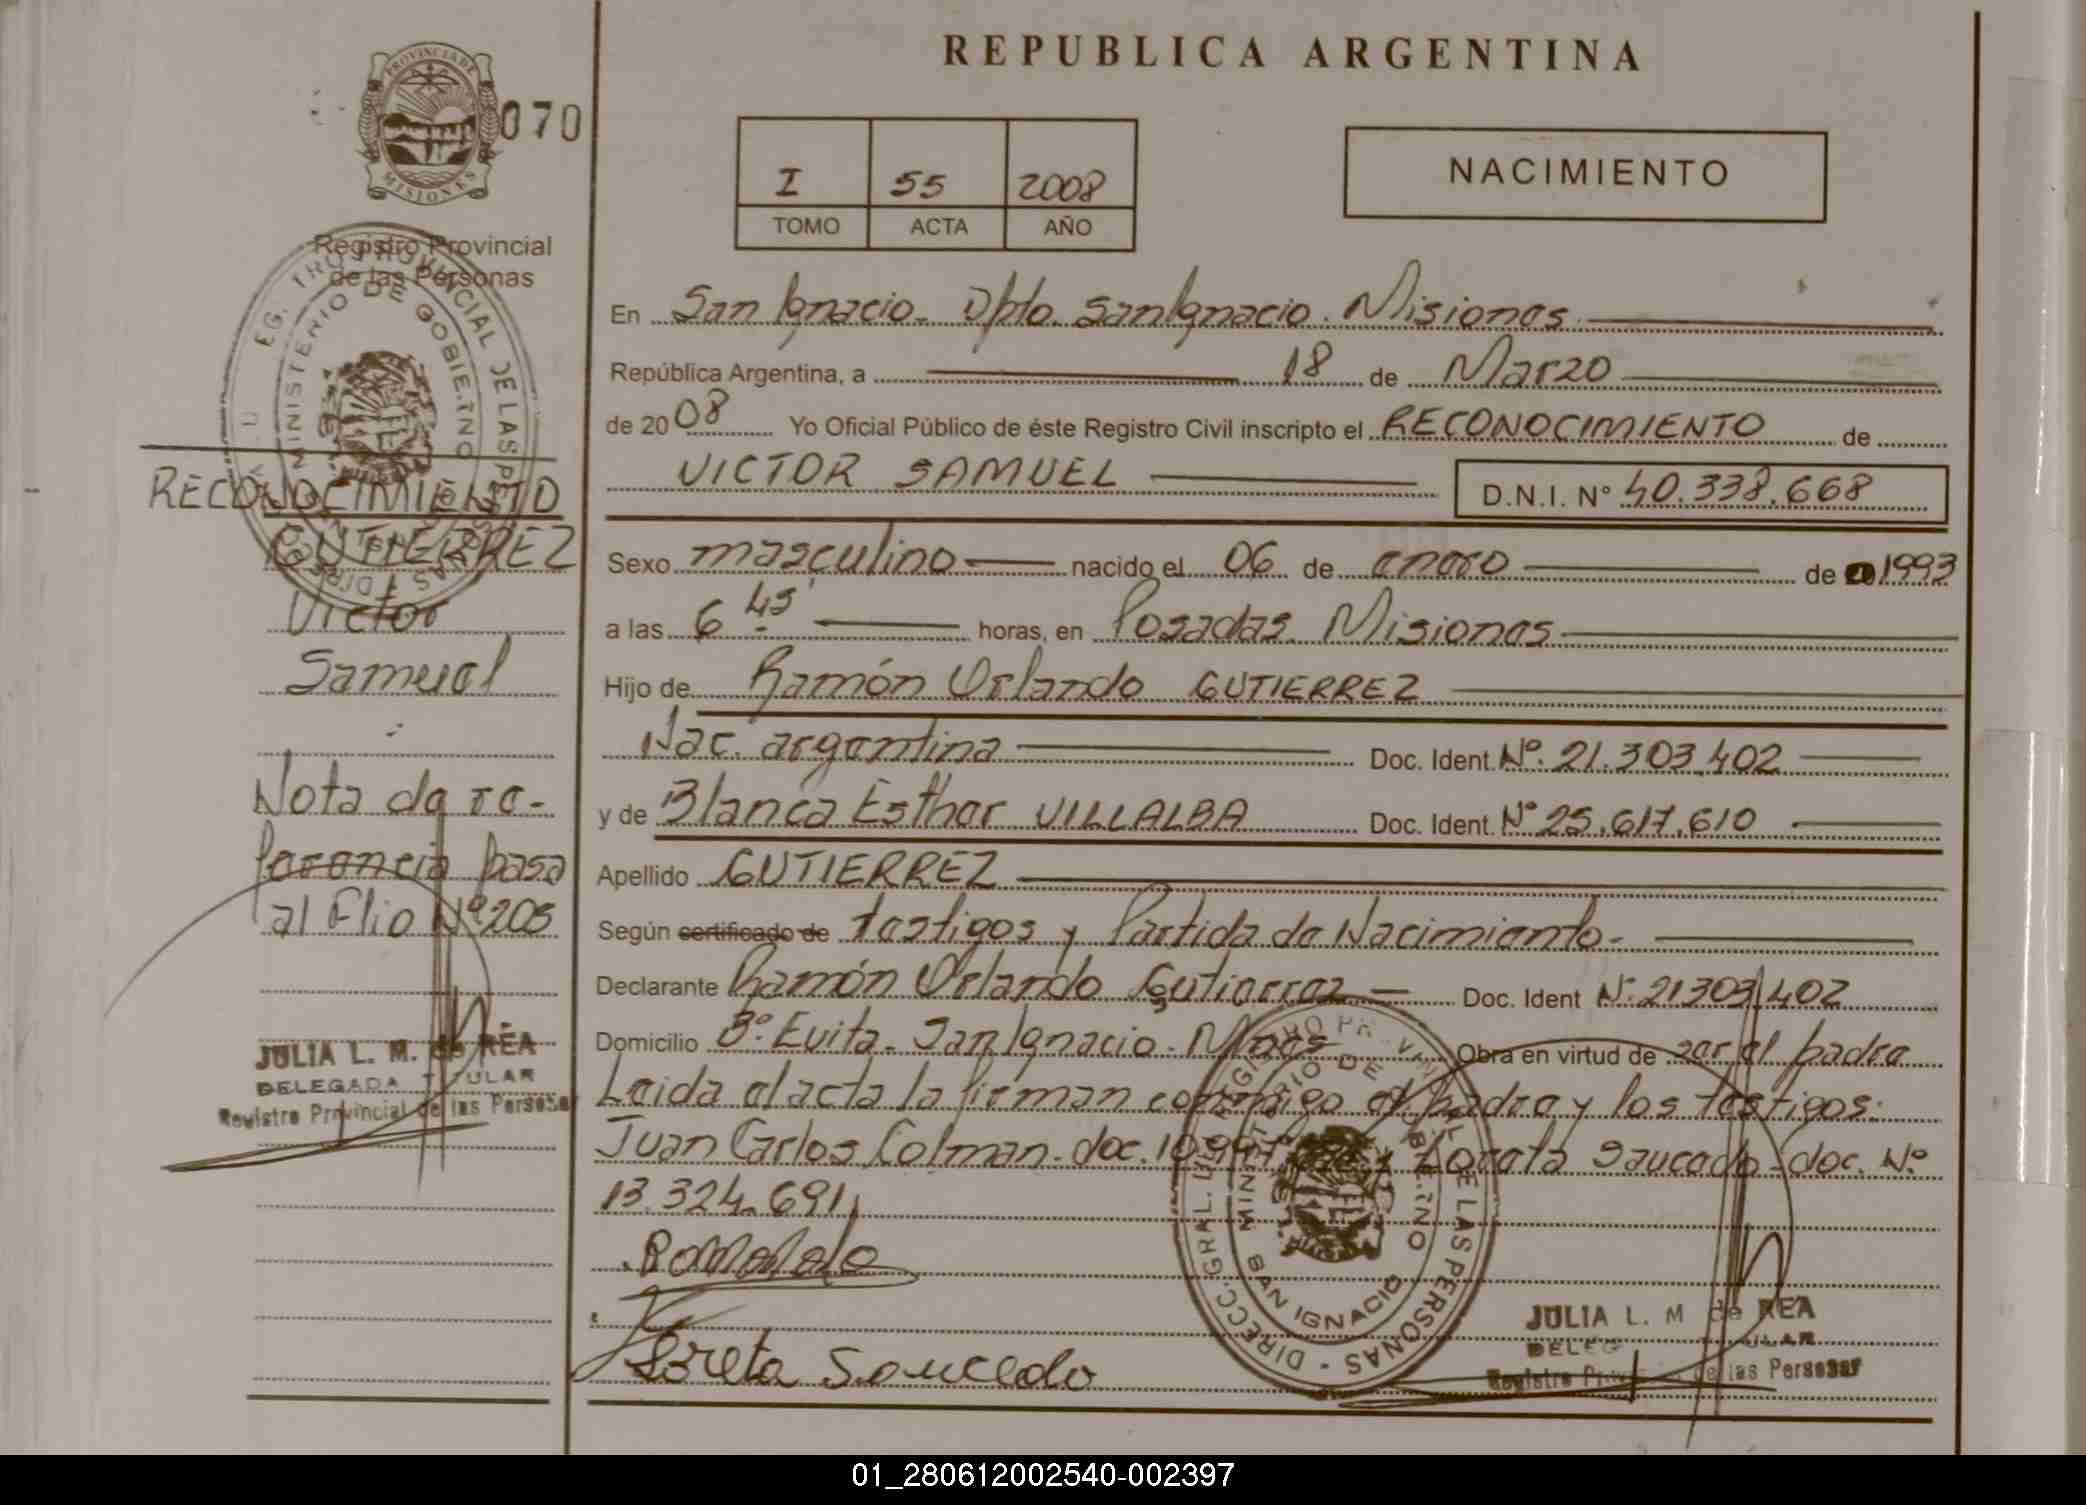 PROVINCIA DE
MISIONES
070
Registro Provincial
de las Personas
RECONOCIMIENTO
GUTIERREZ
Victor
Samuel
Nota de re-
ferencia pasa
al Flio Nº 205
JULIA L. M. de REA
DELEGADA TITULAR
Registro Provincial de las Personas
REPUBLICA ARGENTINA
I 55 2008
TOMO ACTA AÑO
NACIMIENTO
En San Ignacio. Dpto. San Ignacio. Misiones
República Argentina, a 18 de Marzo
de 2008 Yo Oficial Público de éste Registro Civil inscripto el RECONOCIMIENTO de
VICTOR SAMUEL D.N.I. Nº 40.338.668
Sexo masculino nacido el 06 de enero de 1993
a las 6 45' horas, en Posadas Misiones
Hijo de Ramón Orlando GUTIERREZ
Nac. argentina Doc. Ident. Nº. 21.303.402
y de Blanca Esther VILLALBA Doc. Ident. Nº 25.617.610
Apellido GUTIERREZ
Según certificado de testigos y Partida de Nacimiento.
Declarante Ramón Orlando Gutierrez Doc. Ident Nº. 21303.402
Domicilio Bº. Evita. San Ignacio. Mnes Obra en virtud de ser el padre
Leida el acta la firman conmigo el padre y los testigos:
Juan Carlos Colman. doc. Loreta Saucedo. doc. Nº
13.324.691
Loreta Soucedo
DIRECC. GRAL. DEL REGISTRO PROVINCIAL DE LAS PERSONAS
MINISTERIO DE GOBIERNO
SAN IGNACIO
JULIA L. M de REA
Registro Provincial de las Personas
01_280612002540-002397